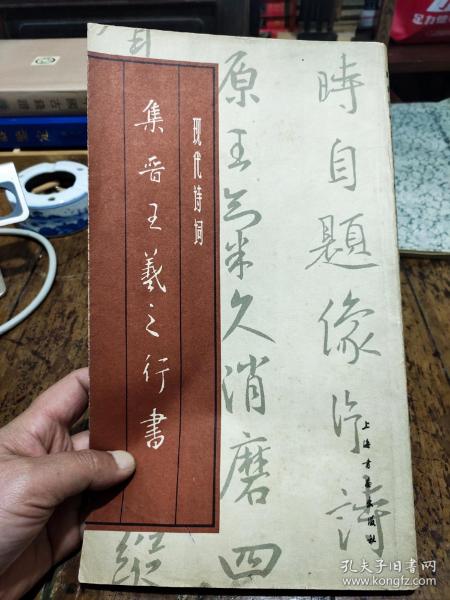 時自題像
詩
原王氣久消磨四
縱
现代诗词
集晋王羲之行書
上海书画出版社
足力健
孔夫子旧书网
www.kongfz.com